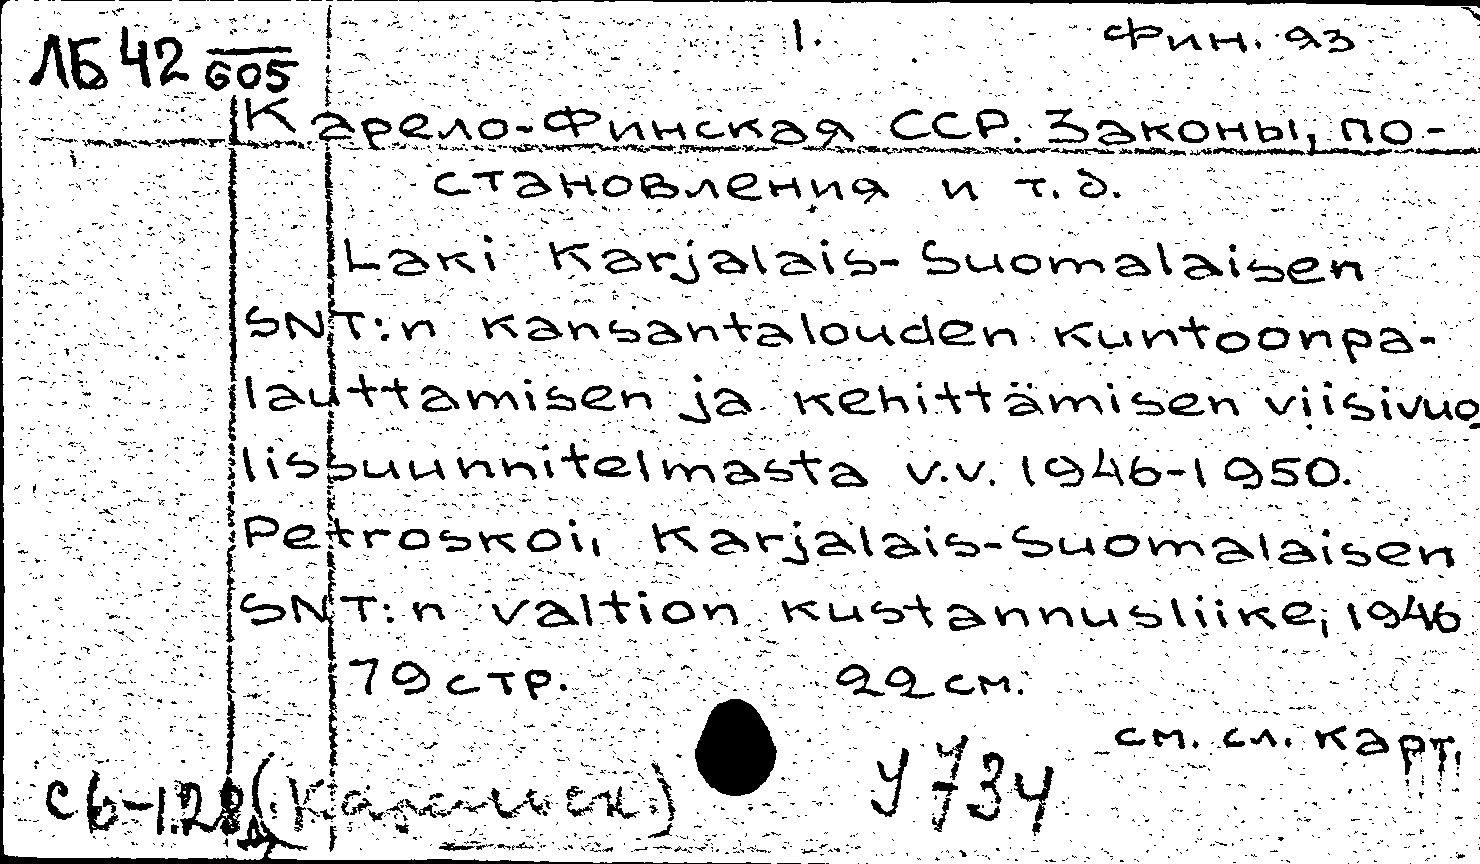 1. Фин. яз
ЛБ 42 605
Карело-Финская ССР. Законы, по-
становления и т.д.
Laki Karjalais-Suomalaisen
SNT:n kansantalouden kuntoonpa-
lauttamisen ja kehittämisen viisivuo
lissuunnitelmasta v.v. 1946-1950.
Petroskoi, Karjalais-Suomalaisen
SNT:n valtion kustannusliike, 1946
79 стр. 22 см.
см. сл. карт.
сб-1.28 (Карельск.) У 734